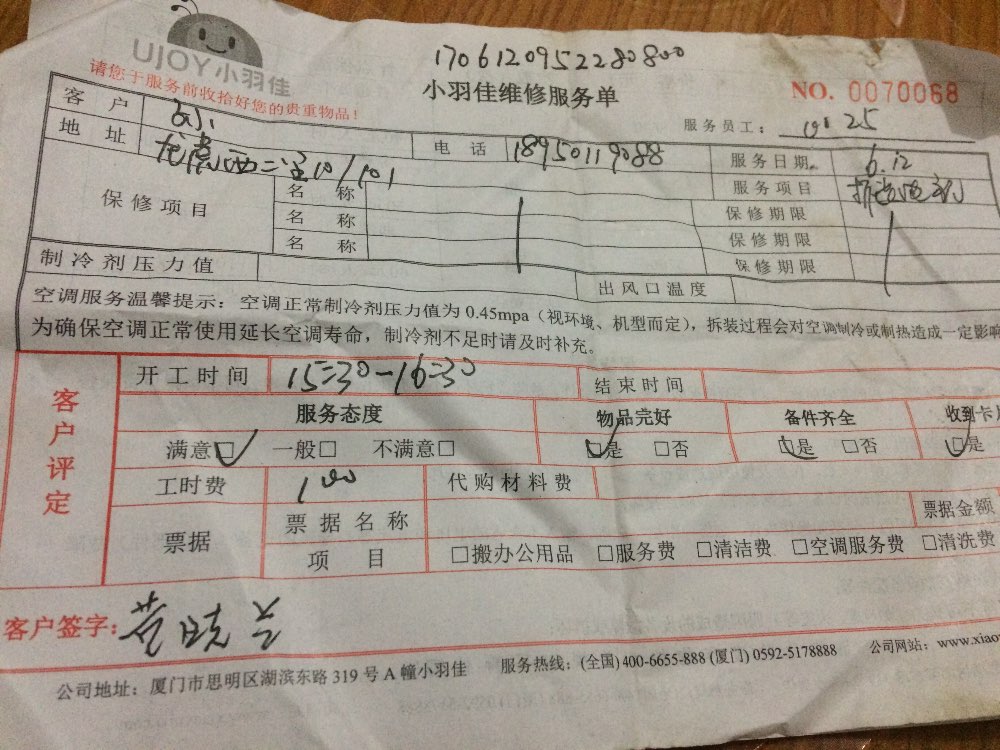 UJOY小羽佳
17061209522280800
请您于服务前收拾好您的贵重物品!
小羽佳维修服务单
NO. 0070068
服务员工: 25
客户 电话 18950119088 服务日期 6.12
地址 西二 10/101 服务项目
保修项目 名称 保修期限
名称 保修期限
名称 保修期限
制冷剂压力值 出风口温度
空调服务温馨提示:空调正常制冷剂压力值为0.45mpa(视环境、机型而定),拆装过程会对空调制冷或制热造成一定影响
为确保空调正常使用延长空调寿命,制冷剂不足时请及时补充。
客户评定
开工时间 15:30-16:30 结束时间
服务态度 物品完好 备件齐全 收到卡
满意□ 一般□ 不满意□ □是 □否 □是 □否 □是
工时费 100 代购材料费
票据 票据名称 票据金额
项目 □搬办公用品 □服务费 □清洁费 □空调服务费 □清洗费
客户签字: 晓兰
公司地址:厦门市思明区湖滨东路319号A幢小羽佳 服务热线:(全国)400-6655-888 (厦门) 0592-5178888 公司网站:www.xiao